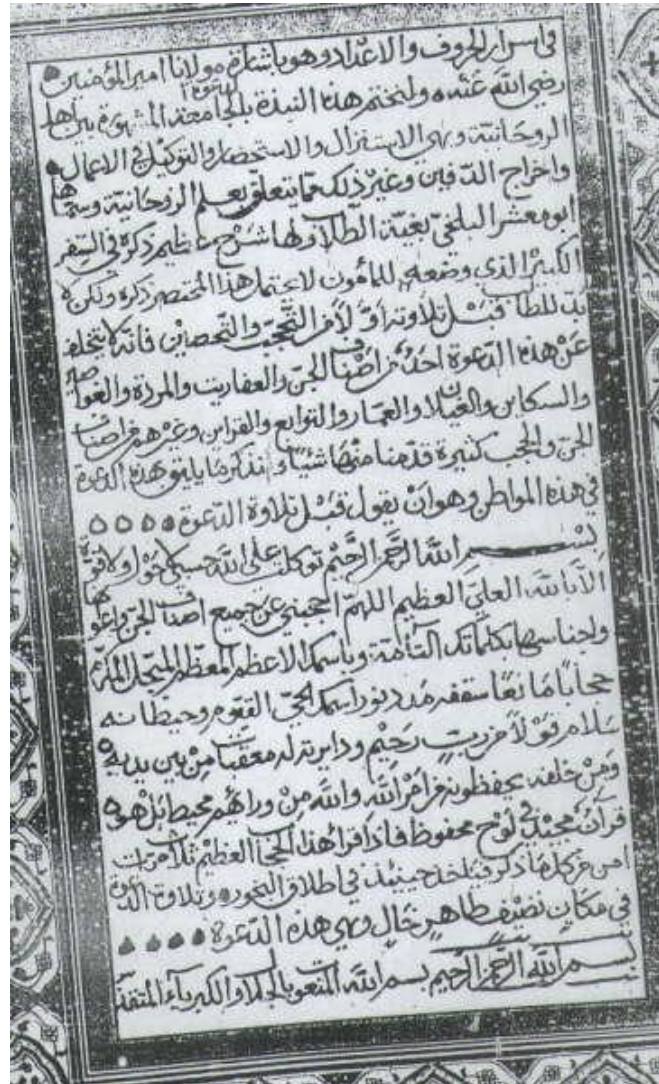 في اسرار الحروف والاعداد وهو باشارة مولانا امير المؤمنين
رضي الله عنه ولنختم هذه النبذة بالدعوة الجامعة المشهورة بين اهل
الروحانية وهي الاستنزال والاستحضار والتوكيل في الاعمال
واخراج الدفين وغير ذلك مما يتعلق بعلم الروحانية وسماها
ابو معشر البلخي بغية الطالب ولها شرح عظيم ذكره في السفر
الكبير الذي وضعه للمأمون لا يحتمل هذا المختصر ذكره ولكن لا
بد للطالب قبل تلاوته اولا من التحجب والتحصين فانه لا يتخلف
عن هذه الدعوة احد من اصناف الجن والعفاريت والمردة والغواصة
والسكان والغيلان والعمار والتوابع والقراين وغيرهم من اصناف
الجن والحجب كثيرة قدمنا منها شيئا ونذكر ما يليق بهذه الدعوة
في هذه المواطن وهو ان يقول قبل تلاوة الدعوة
بسم الله الرحمن الرحيم توكلت على الله حسبي لا حول ولا قوة
الا بالله العلي العظيم اللهم احجبني عن جميع اصناف الجن واعوانها
واجناسها بكلماتك التآمة وباسمك الاعظم المعظم المبجل المكرم
حجابا مانعا سقفه مدد نور اسمك الحي القيوم وحيطانه
سلام قولا من رب رحيم ودايرته له معقبات من بين يديه
ومن خلفه يحفظونه من امر الله والله من ورائهم محيط بل هو
قرآن مجيد في لوح محفوظ فاذا قرأ هذا الحجب العظيم ثلاث مرات
امن من كل ما ذكر فيأخذ حينئذ في اطلاق البخور وتلاوة الدعوة
في مكان نضيف طاهر خال وهي هذه الدعوة
بسم الله الرحمن الرحيم بسم الله المنعوت بالجلال والكبرياء المتفرد